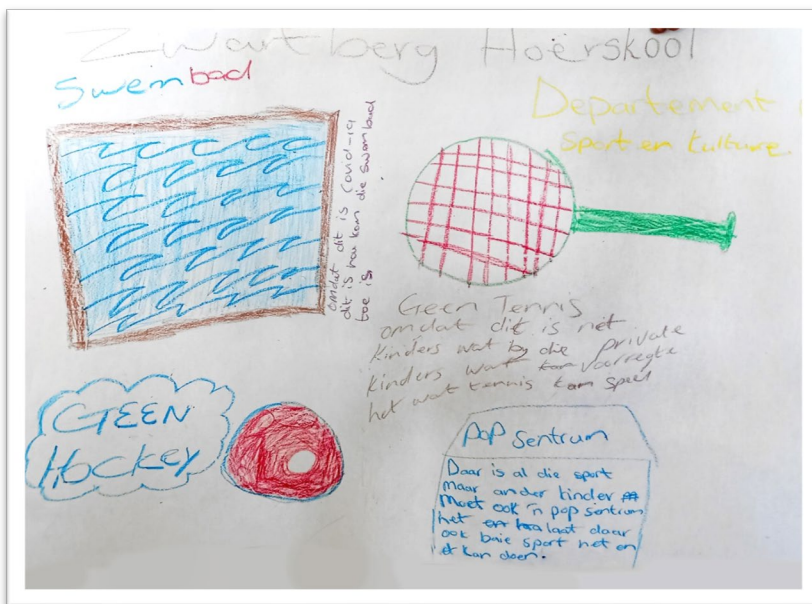 Zwartberg Hoërskool
Swembad
Departement
sport en kulture
omdat dit is Covid-19
dit is hoe kom die swembad
toe is
Geen Tennis
omdat dit is net
kinders wat by die private
kinders wat voorregte
het wat tennis kan speel
GEEN
Hockey
POP sentrum
Daar is al die sport
maar ander kinder
moet ook 'n pop sentrum
het laat daar
ook baie sport net en
ek kan doen.